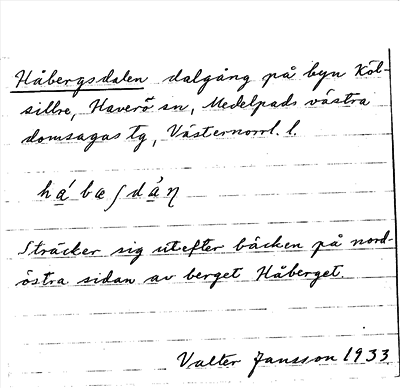 Håbergsdalen dalgång på byn Köl-
sillre, Haverö sn, Medelpads västra
domsagas tg, Västernorrl. l.
Sträcker sig utefter bäcken på nord-
östra sidan av berget Håberget.
Valter Jansson 1933